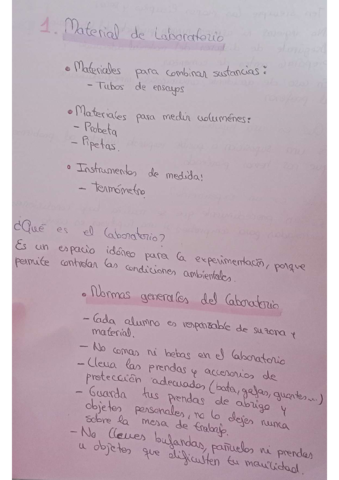 1. Material de Laboratorio
• Materiales para combinar sustancias:
- Tubos de ensayos
• Materiales para medir volumenes:
- Probeta
- Pipetas
• Instrumentos de medida:
- Termómetro
¿Qué es el laboratorio?
Es un espacio idóneo para la experimentación, porque
permite controlar las condiciones ambientales.
• Normas generales del laboratorio
- Cada alumno es responsable de su zona y
material.
- No comas ni bebas en el laboratorio
- Lleva las prendas y accesorios de
protección adecuados (bata, gafas, guantes...)
- Guarda tus prendas de abrigo y
objetos personales, no lo dejes nunca
sobre la mesa de trabajo.
- No lleves bufandas, pañuelos ni prendas
u objetos que dificulten tu movilidad.